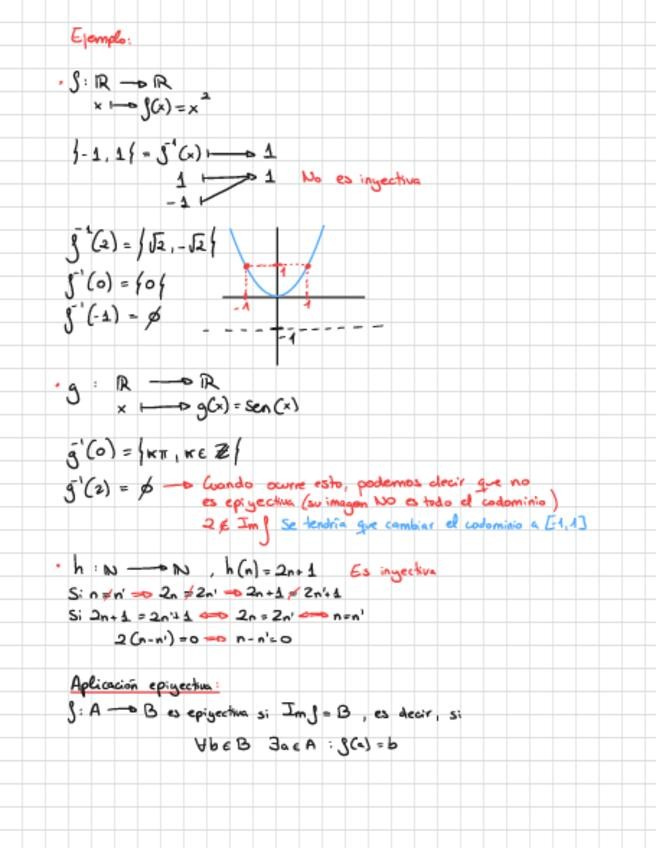 Ejemplo:
· f: ℝ → ℝ
x ↦ f(x) = x²
{-1, 1} = f⁻¹(x) ↦ 1
1 ↦ 1 No es inyectiva
-1
f⁻¹(2) = {√2, -√2}
f⁻¹(0) = {0}
f⁻¹(-1) = ∅
1
-1 1
-1
· g : ℝ → ℝ
x ↦ g(x) = sen(x)
g⁻¹(0) = {kπ, k∈ℤ}
g⁻¹(2) = ∅ → Cuando ocurre esto, podemos decir que no
es epiyectiva (su imagen NO es todo el codominio)
2 ∉ Im f Se tendría que cambiar el codominio a [-1,1]
· h : ℕ → ℕ , h(n) = 2n+1 Es inyectiva
Si n≠n' ⇒ 2n ≠ 2n' ⇒ 2n+1 ≠ 2n'+1
Si 2n+1 = 2n'+1 ⇔ 2n = 2n' ⇔ n=n'
2(n-n') = 0 ⇒ n-n'=0
Aplicación epiyectiva:
f: A → B es epiyectiva si Im f = B , es decir, si
∀b∈B ∃a∈A : f(a) = b